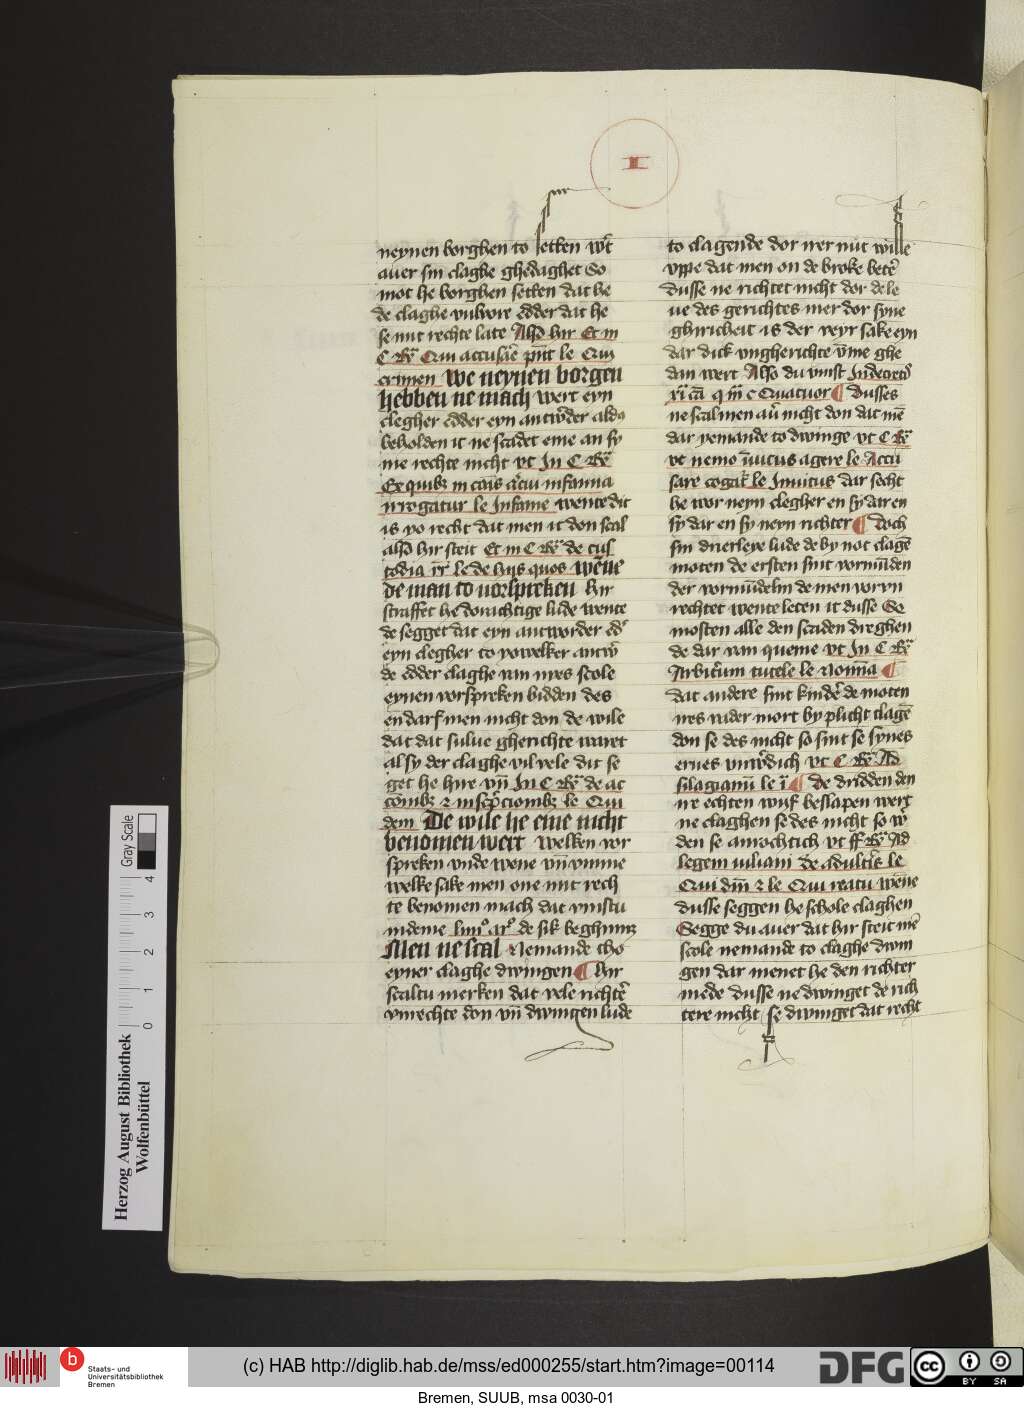 I
neynen borghen to setten wt̄
auer sin claghe ghedaghet So
mot he borghen setten dat he
de claghe vulvore edder dat he
se mit rechte late Also hir Et in
crimen We neynen borgen
hebben ne mach wert eyn
clegher edder eyn antw̄der aldꝰ
beholden it ne scadet eme an sy
me rechte nicht vt In C
Ex quibꝫ in infamia
irrogatur le Infame wente dit
is yo recht dat men it don scal
also hir steit Et in C de cus
todia le de hijs quos wēne
de man to vorspreken hir
straffet he dorachtige lude wente
de segget dat eyn antworder ed͛
eyn clegher to yowelker antw̄
de edder claghe van nyes scole
eynen vorspreken bidden des
en darf men nicht don de wile
dat dat sulue gherichte waret
al sy der claghe vil vele dit se
get he hire vn̄ In C de ac
le Qui
dem De wile he eme nicht
benomen wert Welken vor
spreken vnde wene vn̄ vmme
welke sake men one mit rech
te benomen mach dat vinstu
indeme de sik beghinnꝫ
Men ne scal Nemande tho
eyner claghe dwingen ¶ Hir
scaltu merken dat vele richtē
vnrechte don vn̄ dwingen lude
to clagende dor irer nut wille
vppe dat men on de broke betē
dusse ne richtet nicht dor de le
ue des gerichtes mer dor syne
ghiricheit is der veyr sake eyn
dar dick vngherichte v̄me ghe
dan wert Also du vinst In decreto
Quatuor ¶ Dusses
ne scal men au͛ nicht don dat mē
dar yemande to dwinge vt C
vt nemo īuitus agere le Accu
sare cogat͛ le Inuitus dar secht
he wor neyn clegher en sy dar en
sy dar en sy neyn richter ¶ Doch
sin drierleye lude de by not clagē
moten de ersten sint vormūden
der vormūdelin de men voryn
rechtet wente leten it dusse Se
mosten alle den scaden dreghen
de dar van queme vt In C
Arbit͛um tutele le Non̄na ¶
dat andere sint kindē de moten
ires vader mort by plicht clagē
don se des nicht so sint se synes
erues vnw͛dich vt C Ad
silaganū le ī ¶ De dridden den
ire echten wijf beslapen wert
ne claghen se des nicht so w͛
den se anrochtich vt ff Ad
legem iuliam de adult͛is le
Qui dn̄i ⁊ le Qui reatu wēne
dusse seggen he schole claghen
Segge du auer dat hir steit mē
scole nemande to claghe dwin
gen dar menet he den richter
mede dusse ne dwinget de rich
tere nicht se dwinget dat recht
Herzog August Bibliothek
Wolfenbüttel
0 1 2 3 4
Gray Scale
b
Staats- und
Universitätsbibliothek
Bremen
(c) HAB http://diglib.hab.de/mss/ed000255/start.htm?image=00114
DFG
cc BY SA
Bremen, SUUB, msa 0030-01